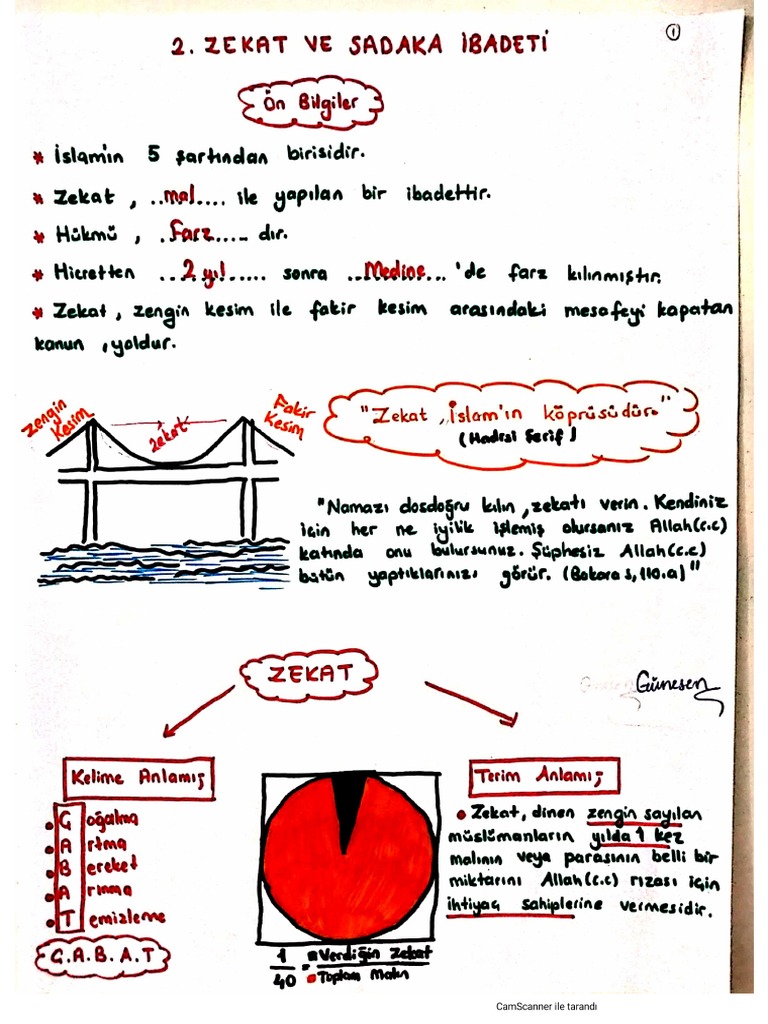 1
2. ZEKAT VE SADAKA İBADETİ
Ön Bilgiler
* İslam'ın 5 şartından birisidir.
* Zekat, ..mal.... ile yapılan bir ibadettir.
* Hükmü, .Farz..... dır.
* Hicretten ...2 yıl..... sonra ..Medine...'de farz kılınmıştır.
* Zekat, zengin kesim ile fakir kesim arasındaki mesafeyi kapatan
kanun, yoldur.
Zengin
Kesim
Zekat
Fakir
Kesim
"Zekat, İslam'ın köprüsüdür."
(Hadisi Şerif)
"Namazı dosdoğru kılın, zekatı verin. Kendiniz
için her ne iyilik işlemiş olursanız Allah(c.c)
katında onu bulursunuz. Şüphesiz Allah(c.c)
bütün yaptıklarınızı görür. (Bakara s, 110.a)"
ZEKAT
Günesen
Kelime Anlamı;
• Goğalma
• Artma
• Bereket
• Arınma
• Temizleme
G.A.B.A.T
1/40 = Verdiğin Zekat
Toplam Malın
Terim Anlamı;
• Zekat, dinen zengin sayılan
müslümanların yılda 1 kez
malının veya parasının belli bir
miktarını Allah(c.c) rızası için
ihtiyaç sahiplerine vermesidir.
CamScanner ile tarandı